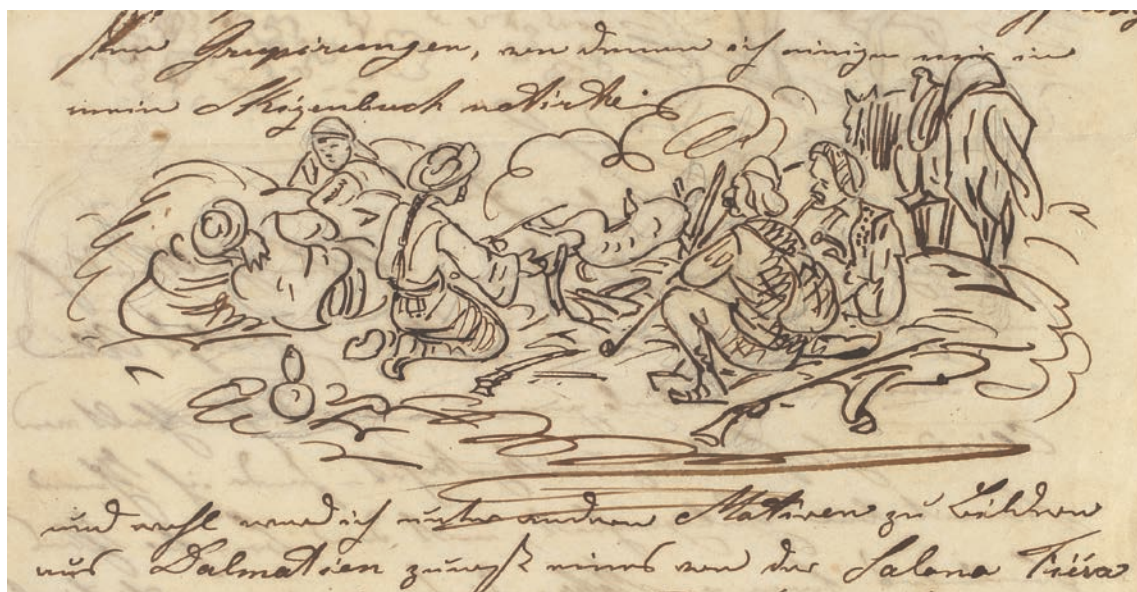 Grupirungen, von denen ich einige mir in
mein Skizenbuch notirte
und wohl werd ich unter andren Motiven zu Bildern
aus Dalmatien zuerst eines von der Salona Fiera